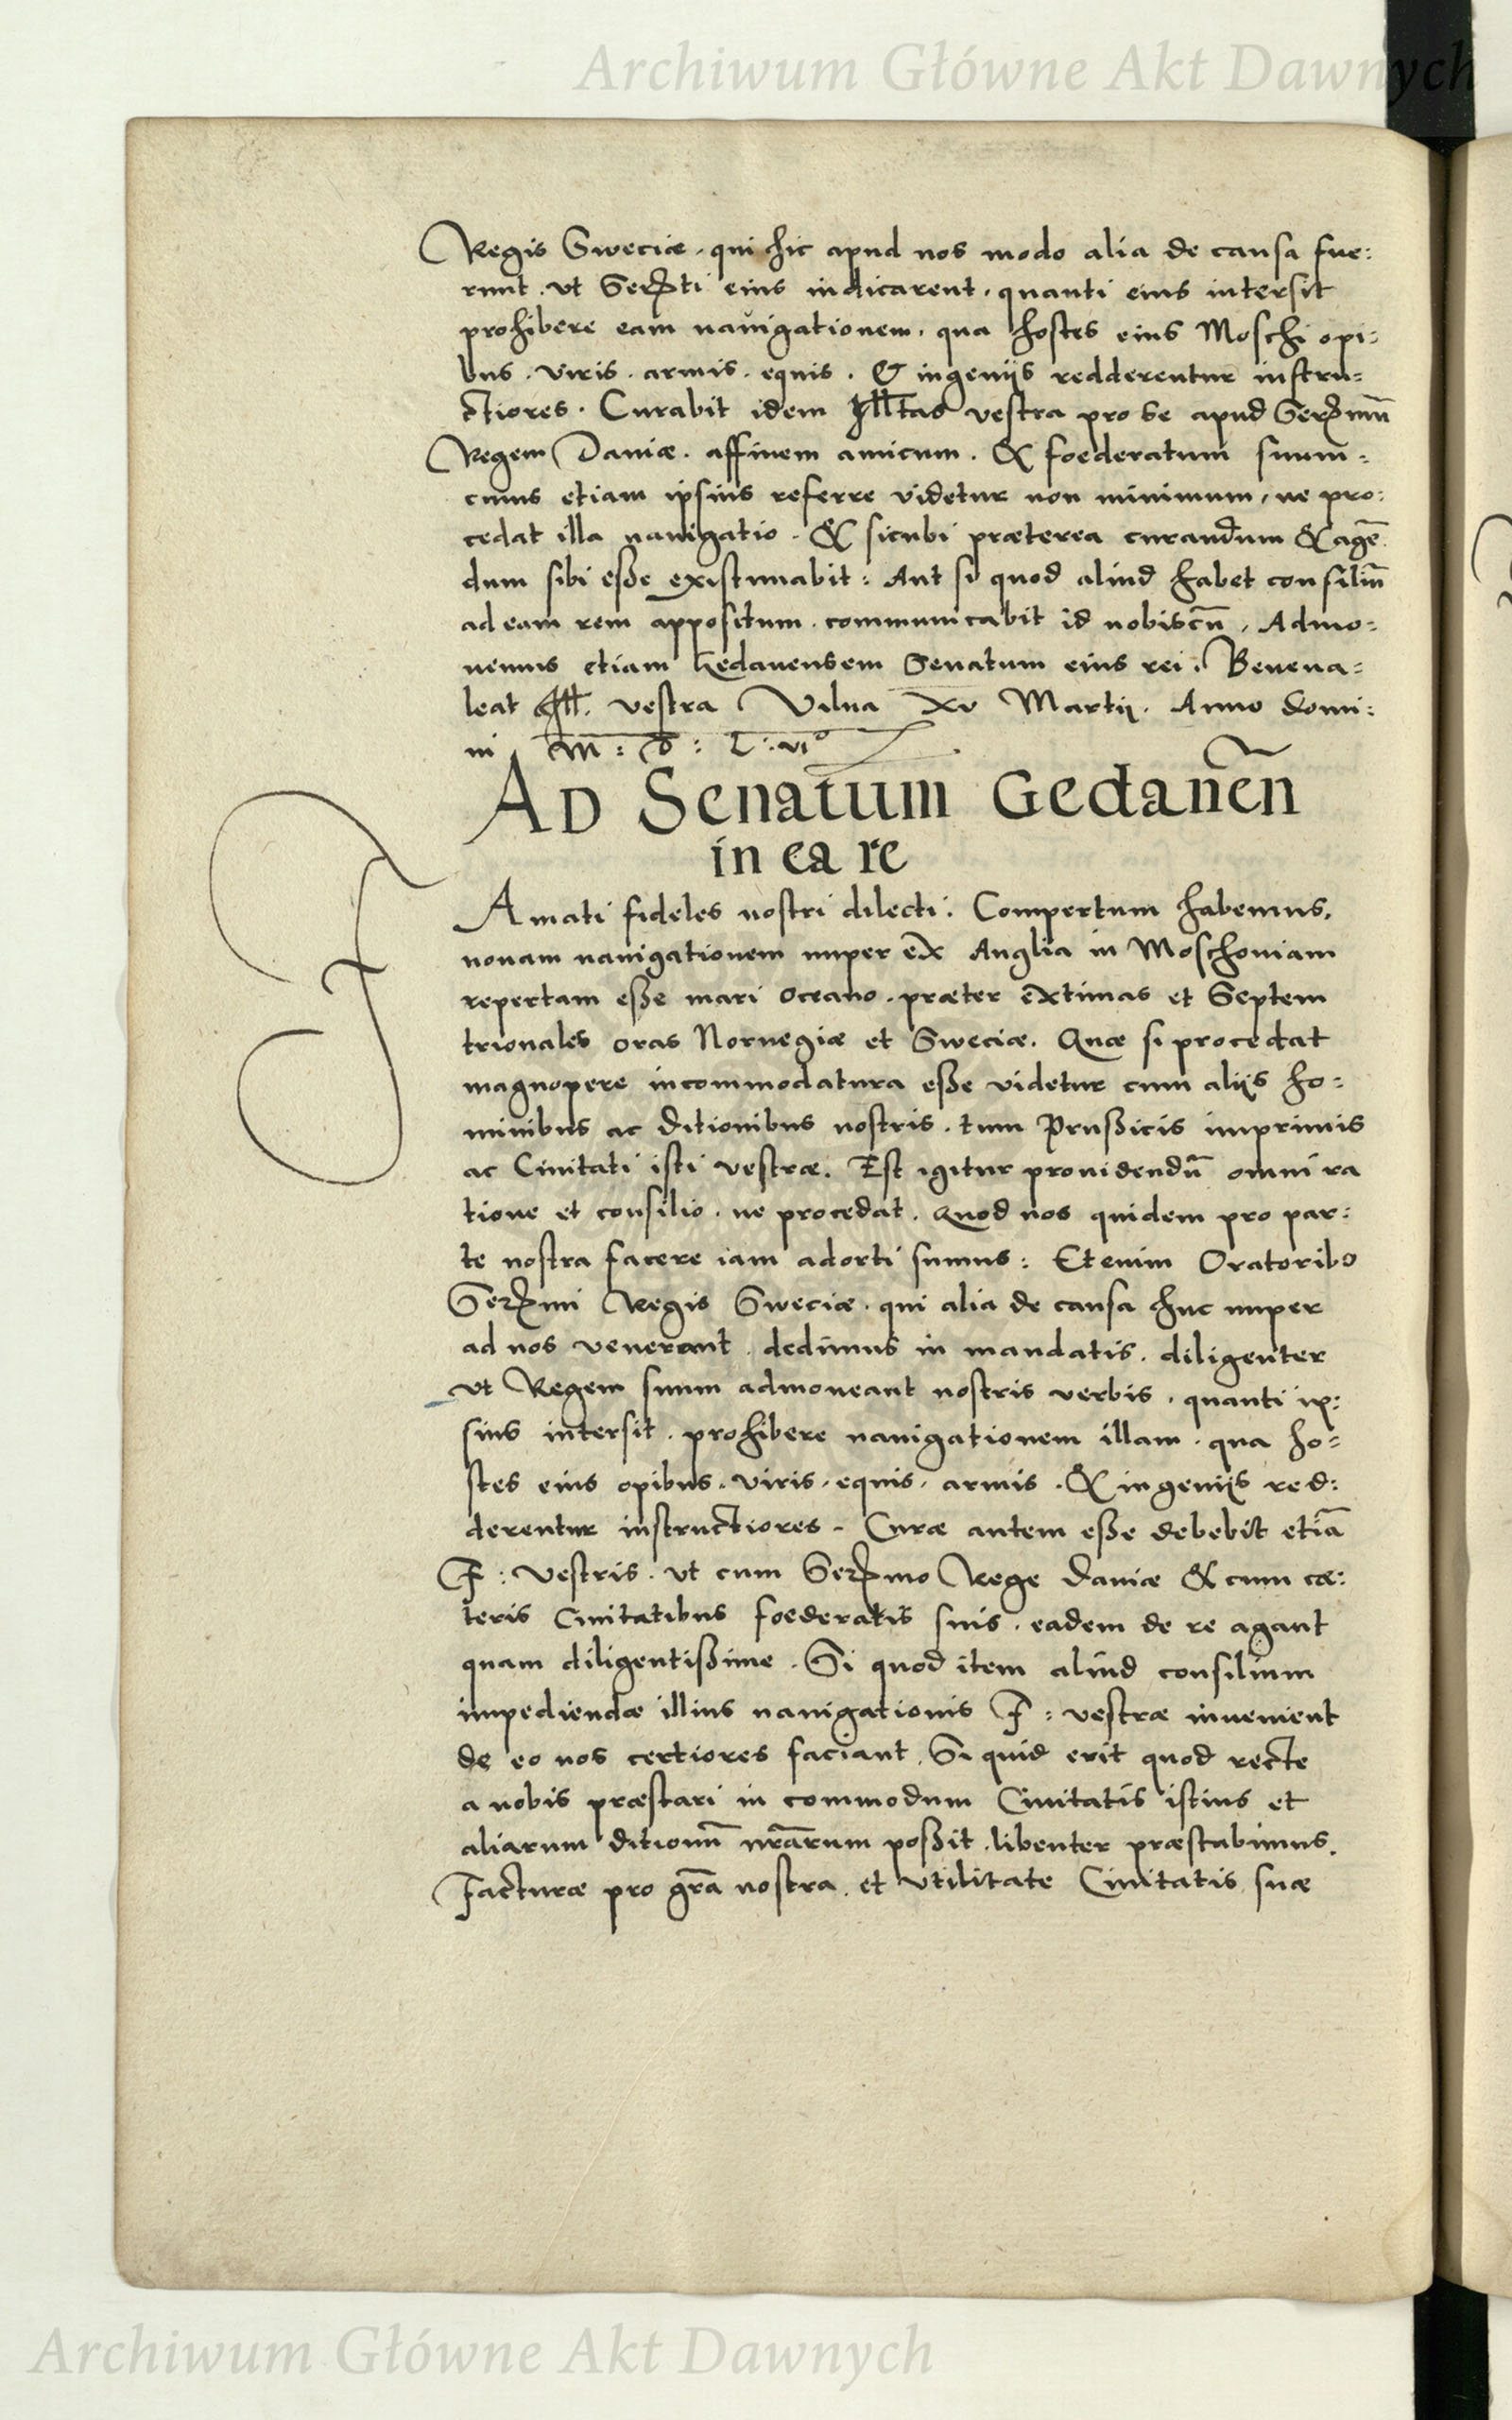 Archiwum Główne Akt Dawnych
Regis Sweciæ . qui hic apud nos modo alia de causa fue:
runt . ut Serēti eius indicarent . quanti eius intersit
prohibere eam navigationem . qua hostes eius Moschi opi:
bus . viris . armis . equis . & ingeniis redderentur instru=
ctiores . Curabit idem Illtas vestra pro se apud Serēmū
Regem Daniæ . affinem amicum . & foederatum suum :
cuius etiam ipsius referre videtur non minimum , ne pro:
cedat illa navigatio . & sicubi præterea curandum & agē
dum sibi esse existimabit : Aut si quod aliud habet consiliū
ad eam rem appositum . communicabit id nobiscū . Admo=
nemus etiam Gedanensem Senatum eius rei . Beneva=
leat Ill. vestra Vilna XV Martii . Anno domi:
ni M : D : L : VIº
AD Senatum Gedanēn
in ea re
Amati fideles nostri dilecti . Compertum habemus,
novam navigationem nuper ex Anglia in Moschoviam
repertam esse mari Oceano . præter extimas et Septem
trionales oras Norvegiæ et Sweciæ . Quæ si procedat
magnopere incommodatura esse videtur cum aliis ho:
minibus ac ditionibus nostris . tum Prussicis imprimis
ac Civitati isti vestræ . Est igitur providendū omni ra
tione et consilio . ne procedat . Quod nos quidem pro par:
te nostra facere iam adorti sumus : Etenim Oratoribꝰ
Serēmi Regis Sweciæ . qui alia de causa huc nuper
ad nos venerant . dedimus in mandatis . diligenter
ut Regem suum admoneant nostris verbis . quanti ip:
sius intersit . prohibere navigationem illam . qua ho=
stes eius opibus . viris . equis . armis . & ingeniis red:
derentur instructiores . Curæ autem esse debebit etiā
F : vestris . ut cum Serēmo Rege Daniæ & cum cæ:
teris Civitatibus foederatis suis . eadem de re agant
quam diligentissime . Si quod item aliud consilium
impediendæ illius navigationis F : vestræ invenient
de eo nos certiores faciant . Si quid erit quod recte
a nobis præstari in commodum Civitatis istius et
aliarum ditionū nrārum possit . libenter præstabimus .
Facturæ pro grā nostra . et utilitate Civitatis suæ
Archiwum Główne Akt Dawnych